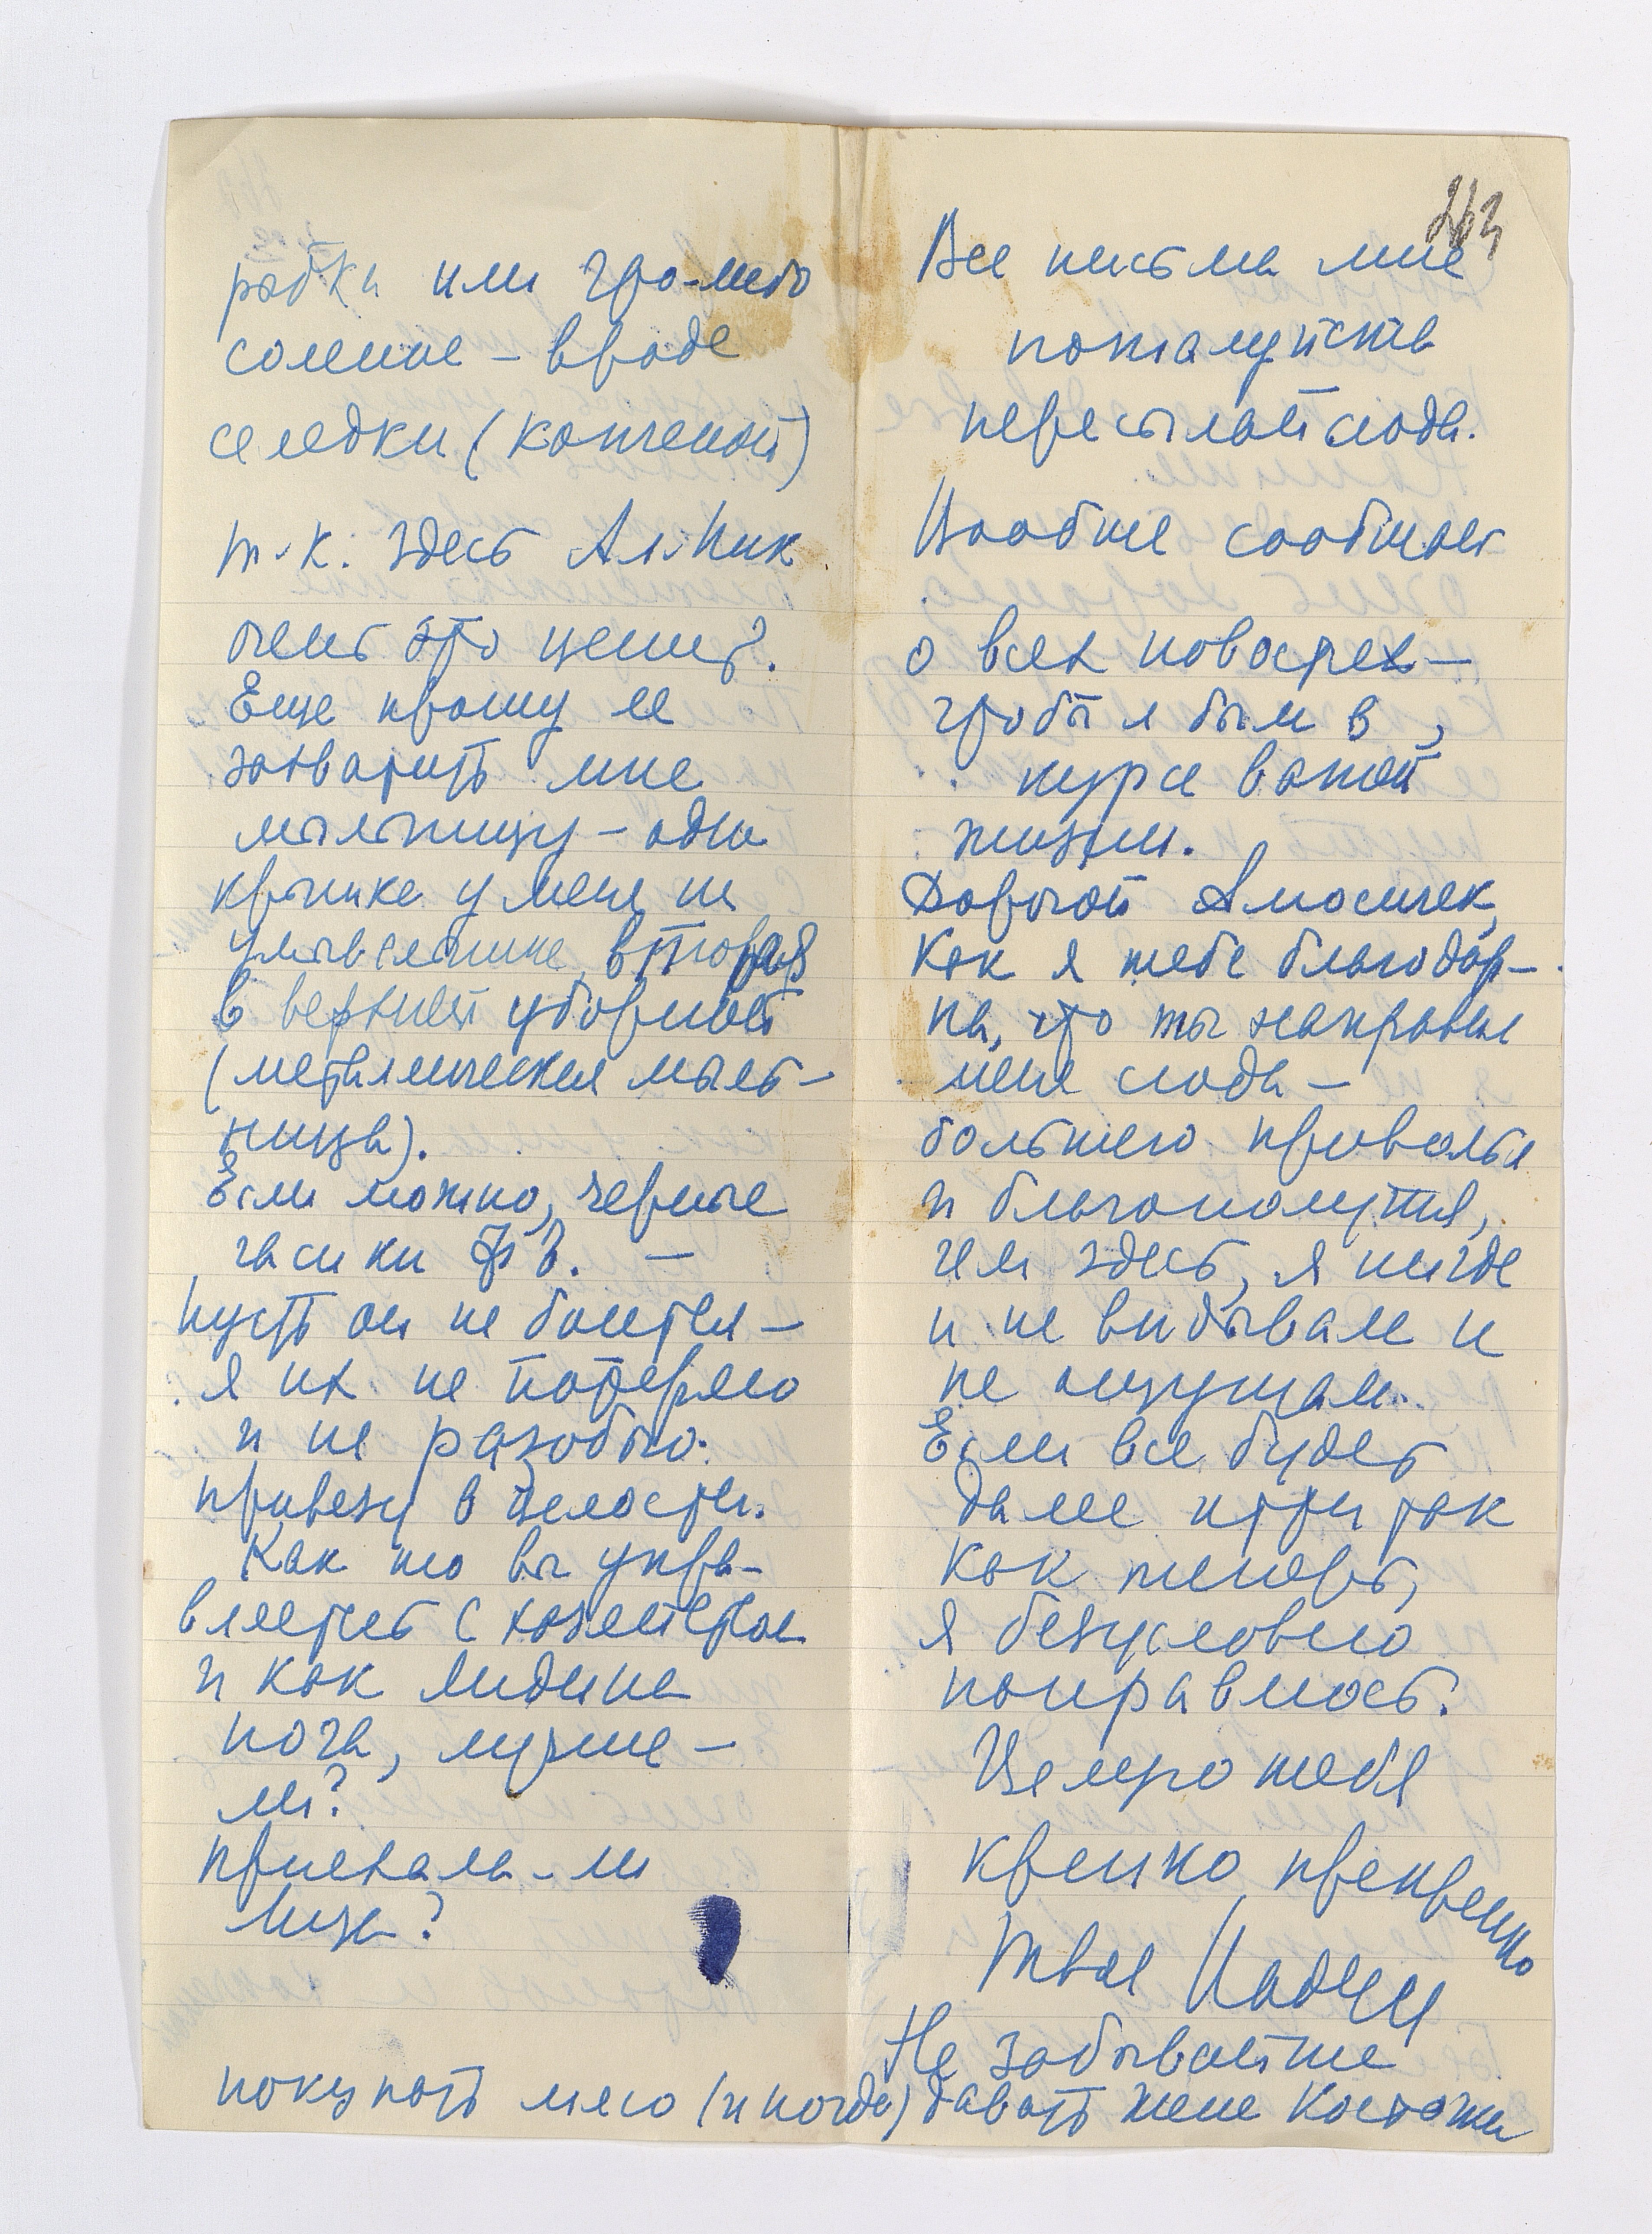 рыбки или что-либо
соленое – вроде
селедки (копченой)
т.к. здесь Ал. Ник
очень это ценит.
Еще прошу ее
захватить мне
мыльницу – одна
крышка у меня на
умывальнике, вторая
в верхней уборной
(металлическая мыль-
ница).
Если можно, черные
часики
пусть он не боится –
я их не потеряю
и не разобью.
привезу в целости.
Как то вы упра-
вляетесь с хозяйством
и как Лидина
нога, лучше –
ли?
приехала-ли
Лиза?
263
Все письма мне
пожалуйста
пересылай сюда.
Вообще сообщай
о всех новостях –
чтобы я был в
курсе вашей
жизни.
Дорогой Амосичек,
Как я тебе благодар-
на, что ты направил
меня сюда –
большего приволья
и благополучия,
чем здесь, я нигде
и не видывала и
не ощущала.
Если все будет
далее идти так
как теперь,
я безусловно
поправлюсь.
Целую тебя
крепко, прекрепко
Твоя Надун
Не забывайте
покупать мясо (иногда) давать Жене Косточки